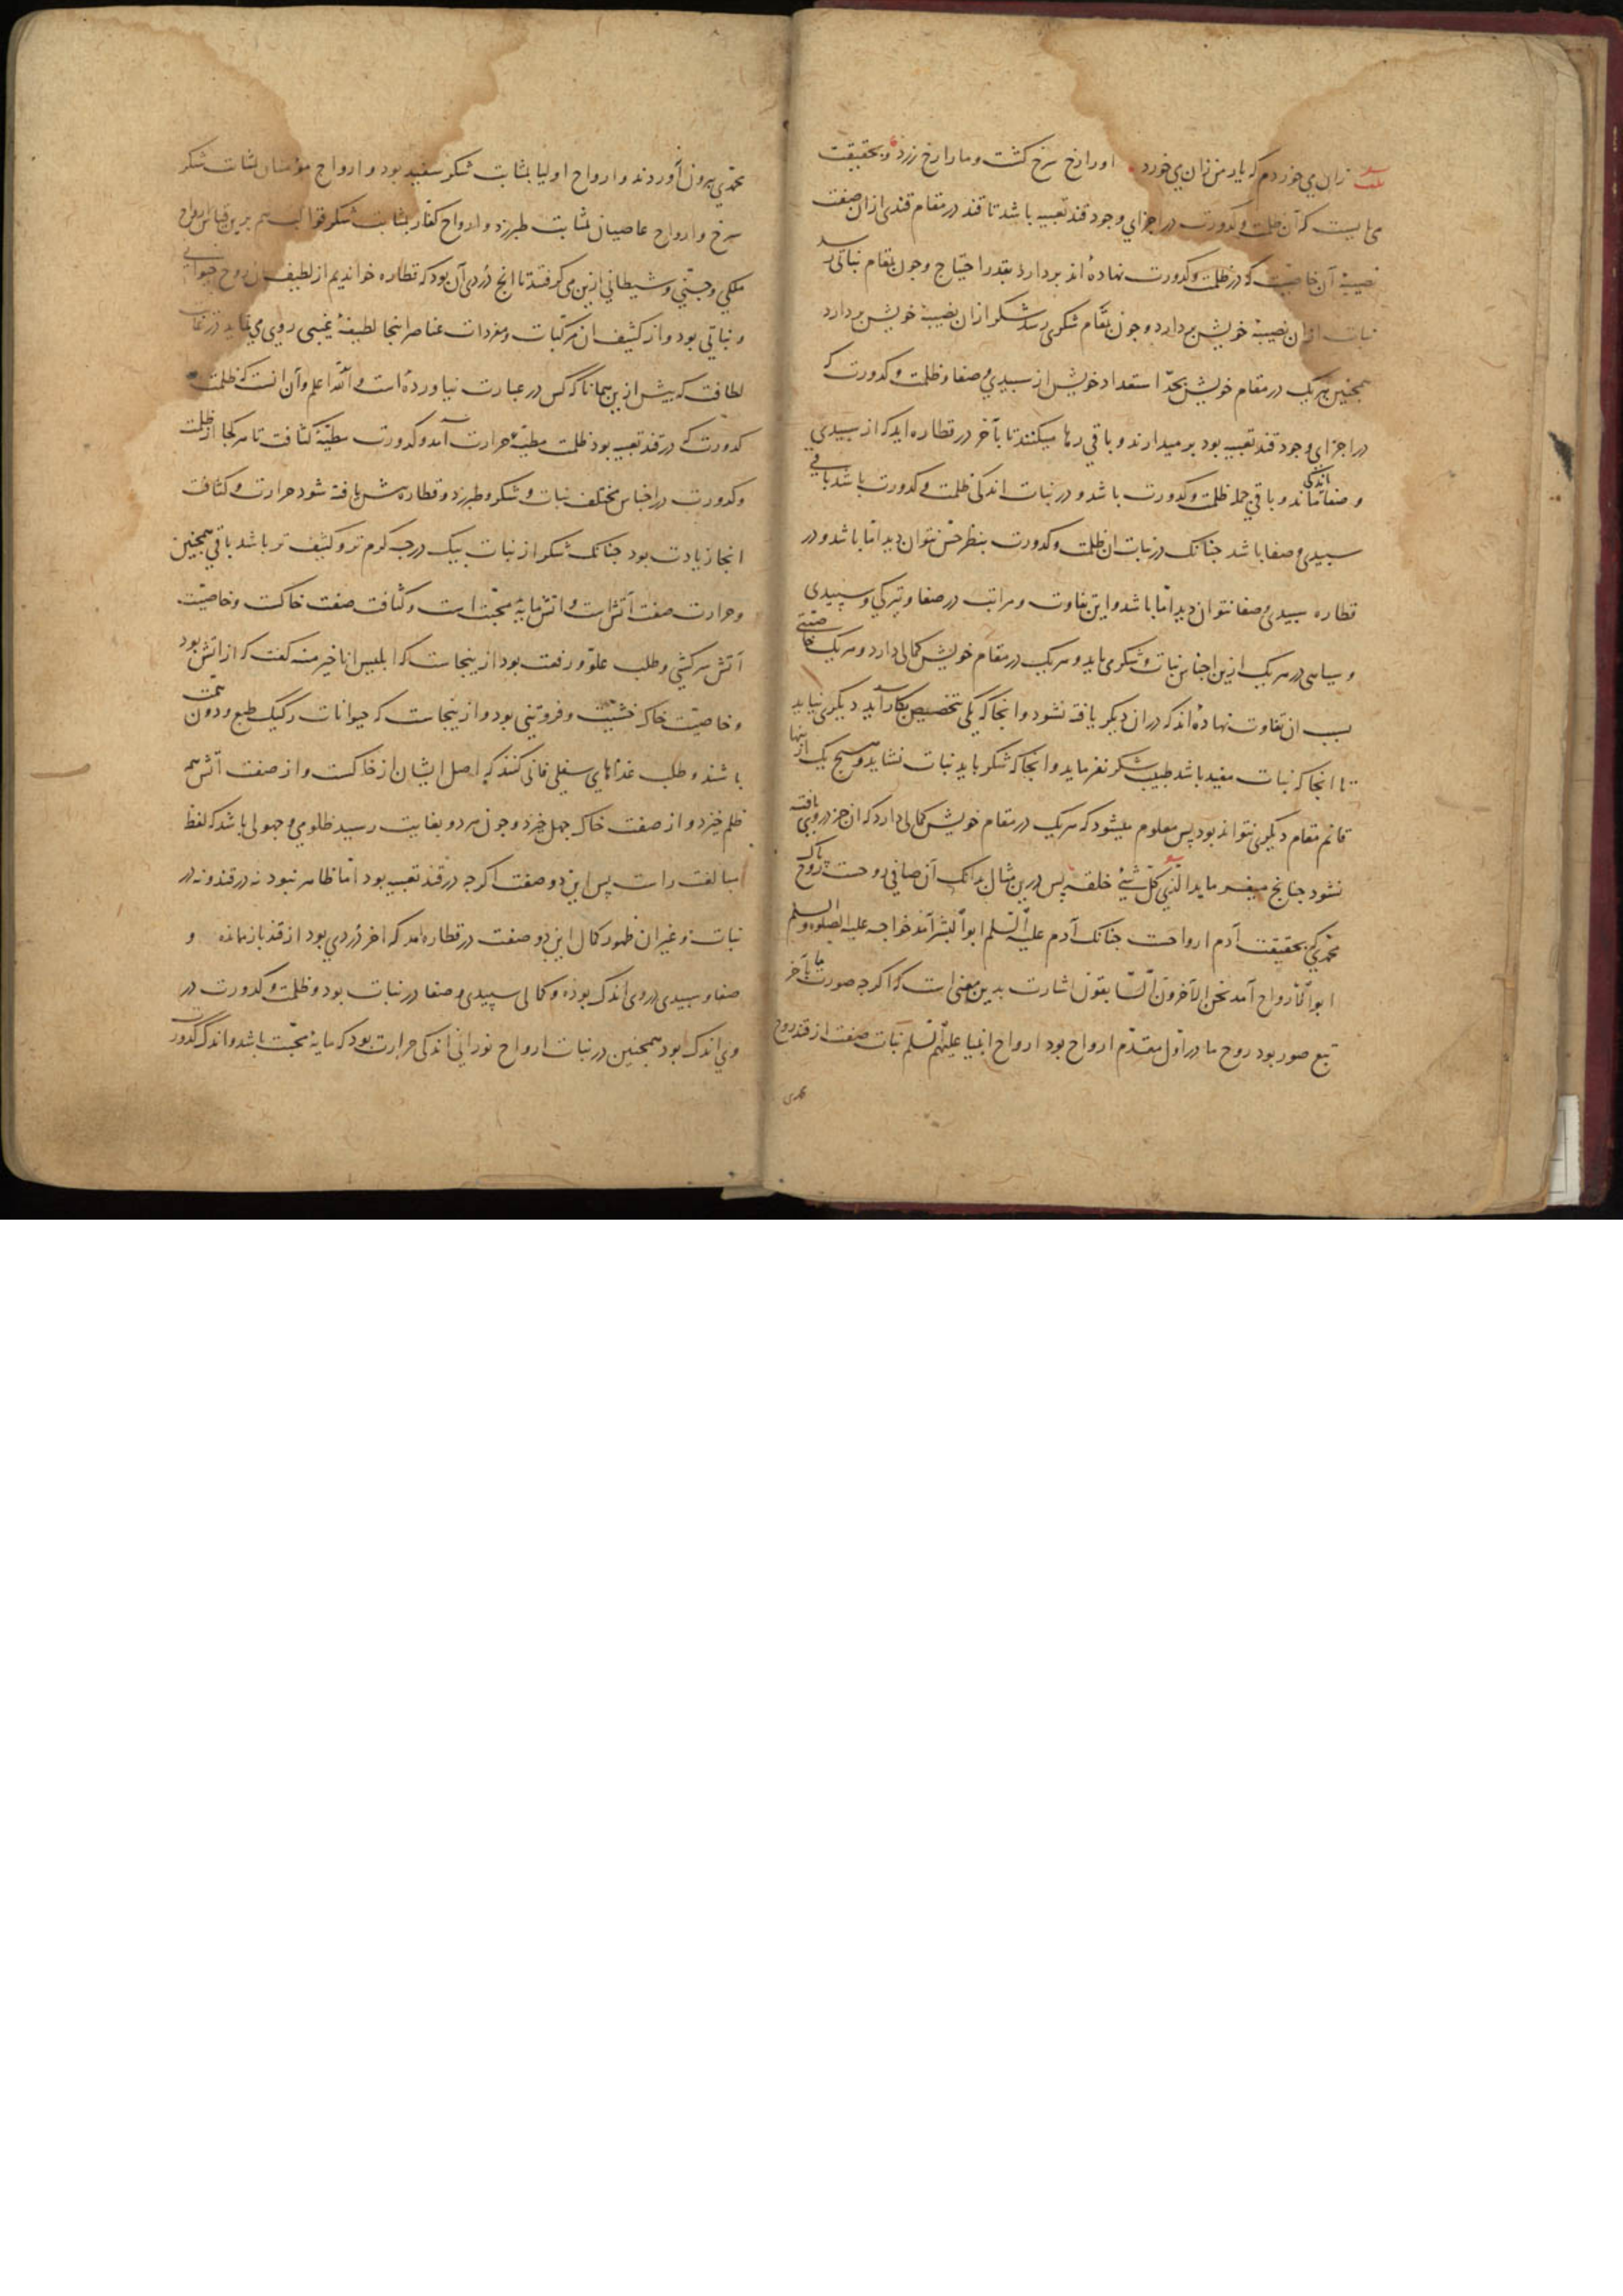 بیت زان می خوردم که یار من زان می خورد او را رخ سرخ گشت و ما را رخ زرد و بحقیقت
می بایست که آن ظلمت و کدورت در اجزای وجود قند تعبیه باشد تا قند در مقام قندی ازان صفت
نصیبهٔ آن خاصیت که در ظلمت و کدورت نهاده اند بردارد بقدر احتیاج و چون بمقام نباتی رسد
نبات ازان نصیبهٔ خویش بردارد و چون بمقام شکری رسد شکر ازان نصیبهٔ خویش بردارد
همچنین هریک در مقام خویش بحدّ استعداد خویش از سپیدی و صفا و ظلمت و کدورت که
در اجزای وجود قند تعبیه بود بر میدارند و باقی رها میکنند تا بآخر در قطاره اید که از سپیدی
و صفا اندکی ماند و باقی جمله ظلمت و کدورت باشد و در نبات اندکی ظلمت و کدورت باشد باقی
سپیدی و صفا باشد جنانک در نبات ان ظلمت و کدورت بنظر حسّ نتوان دید امّا باشد و در
قطاره سپیدی و صفا نتوان دید امّا باشد و این تفاوت و مراتب در صفا و تیرگی و سپیدی
و سیاهی در هر یک ازین اجناس نبات و شکر می باید و هر یک در مقام خویش کمالی دارد و هر یک خاصیتی
بسبب ان تفاوت نهاده اند که در ان دیگر یافته نشود و انجا که یکی بتخصیص بکار آید دیگری نیاید
تا انجا که نبات مفید باشد طبیب شکر نفرماید و انجا که شکر باید نبات نشاید و هیچ یک ازینها
قائم مقام دیگری نتواند بود پس معلوم میشود که هریک در مقام خویش کمالی دارد که ان جز در وی یافته
نشود جنانچ میفرماید الّذی کلّ شیئ خلقه پس درین مثال بدانک آن صافی روحست روح پاک
محمّدی که بحقیقت آدم ارواحست جنانک آدم علیه السّلم ابو البشر آمد خواجه علیه الصلوة و السلم
ابو الارواح آمد نحن الآخرون السّابقون اشارت بدین معنی است که اگرچه صورت ما بآخر
تبع صور بود روح ما در اوّل مقدّم ارواح بود ارواح انبیا علیهم السّلم نبات صفت از قند روح
محمّدی بیرون آوردند و ارواح اولیا بمثابت شکر سفید بود و ارواح مؤمنان بمثابت شکر
سرخ و ارواح عاصیان بمثابت طبرزد و ارواح کفّار بمثابت شکر قوالب هم برین قیاس ارواح
ملکی و جنّی و شیطانی ازین می گرفتند تا انچ دُردی آن بود که قطاره خواندیم از لطیف ان روح حیوانی
و نباتی بود و از کثیف ان مرکّبات و مفردات عناصر اینجا لطیفهٔ غیبی روی می نماید در غایت
لطافت که بیش ازین همانا که کس در عبارت نیاورده است و اللّه اعلم و آن انست که ظلمت
کدورت که در قند تعبیه بود ظلمت مطیّهٔ حرارت آمد و کدورت مطیّهٔ کثافت تا هر کجا از ظلمت
و کدورت در اجناس مختلف نبات و شکر و طبرزد و قطاره بیش یافته شود حرارت و کثافت
انجا زیادت بود جنانک شکر از نبات بیک درجه گرم تر و کثیف تر باشد باقی همچنین
و حرارت صفت آتش است و اتش مایهٔ محبّت است و کثافت صفت خاکست و خاصیّت
آتش سرکشی و طلب علوّ و رفعت بود ازینجاست که ابلیس انا خیر منه گفت که از اتش بود
و خاصیّت خاک خسّت و فروتنی بود و ازینجاست که حیوانات رکیک طبع و دون همّت
باشند و طلب غذاهای سفلی فانی کنند که اصل ایشان از خاکست و از صفت آتش همه
ظلم خیزد و از صفت خاک جهل خیزد و چون هر دو بغایت رسید ظلومی و جهولی باشد که لفظ
مبالغت راست پس این دو صفت اگرچه در قند تعبیه بود امّا ظاهر نبود نه در قند و نه در
نبات و غیر ان ظهور کمال این دو صفت در قطاره امد که اخر دُردی بود از قند باز مانده و
صفا و سپیدی در وی اندک بوده و کمالی سپیدی و صفا در نبات بود و ظلمت و کدورت در
وی اندک بود همچنین در نبات ارواح نورانی اندکی حرارت بود که مایهٔ محبّت باشد و اندک کدورت